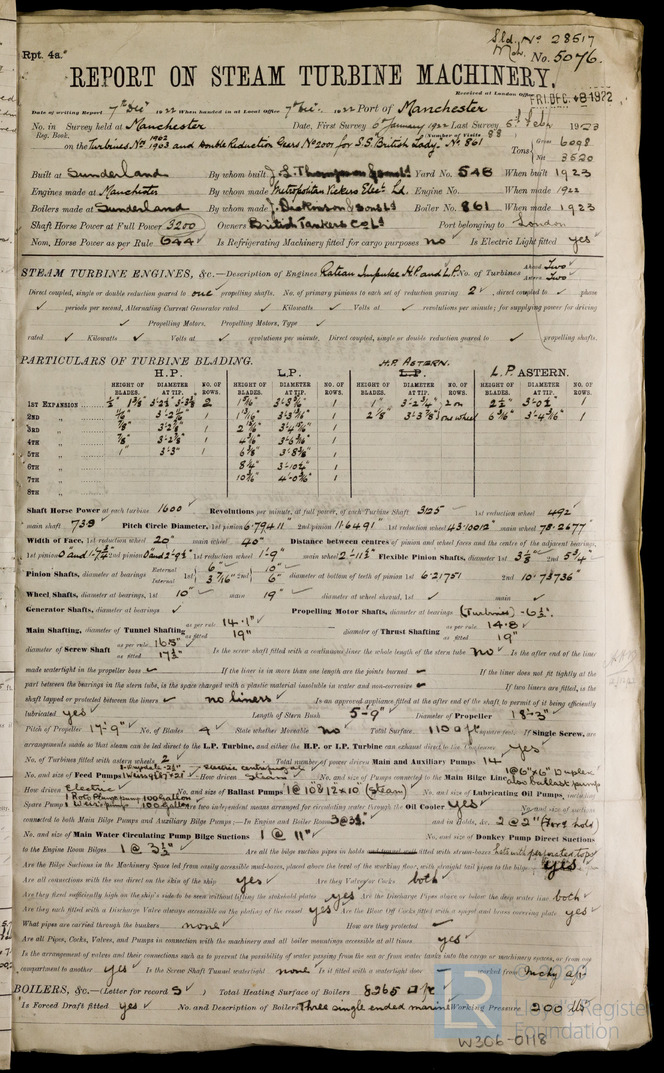 Sld. No 28517
Rpt. 4a.
Mch. No. 5076.
REPORT ON STEAM TURBINE MACHINERY.
Received at London Office FRI. DEC. 8 1922
Date of writing Report 7th Decr 1922 When handed in at Local Office 7th Decr. 1922 Port of Manchester
No. in Survey held at Manchester Date, First Survey 6th January 1922 Last Survey 1923
Reg. Book. (Number of Visits 88)
on the Turbines No 1903 and Double Reduction Gears No 2001 for S.S. British Lady No 861
Tons Gross 6098
Net 3620
Built at Sunderland By whom built J. L. Thompson & Sons Ld Yard No. 546 When built 1923
Engines made at Manchester By whom made Metropolitan Vickers Elec. Ld. Engine No. When made 1922
Boilers made at Sunderland By whom made J. Dickinson & Sons Ld Boiler No. 861 When made 1923
Shaft Horse Power at Full Power 3200 Owners British Tankers Co Ld Port belonging to London
Nom. Horse Power as per Rule 644 Is Refrigerating Machinery fitted for cargo purposes no Is Electric Light fitted yes
STEAM TURBINE ENGINES, &c.—Description of Engines Rateau Impulse H.P. and L.P. No. of Turbines Ahead Two Astern Two
Direct coupled, single or double reduction geared to one propelling shafts. No. of primary pinions to each set of reduction gearing 2 direct coupled to phase
periods per second, Alternating Current Generator rated Kilowatts Volts at revolutions per minute; for supplying power for driving
Propelling Motors, Type
rated Kilowatts Volts at revolutions per minute. Direct coupled, single or double reduction geared to propelling shafts.
PARTICULARS OF TURBINE BLADING.
H.P. L.P. H.P. ASTERN. L.P. ASTERN.
HEIGHT OF BLADES. DIAMETER AT TIP. NO. OF ROWS. HEIGHT OF BLADES. DIAMETER AT TIP. NO. OF ROWS. HEIGHT OF BLADES. DIAMETER AT TIP. NO. OF ROWS. HEIGHT OF BLADES. DIAMETER AT TIP. NO. OF ROWS.
1ST EXPANSION 2 1 1" 2 on 1
2ND " 1 1 one wheel 1
3RD " 7/8" 1 1
4TH " 7/8" 1 1
5TH " 1" 3'-3" 1 1
6TH " 1
7TH " 1
8TH "
Shaft Horse Power at each turbine 1600 Revolutions per minute, at full power, of each Turbine Shaft 3125 1st reduction wheel 492
main shaft 73.8 Pitch Circle Diameter, 1st pinion 6.79411 2nd pinion 11.6491 1st reduction wheel 43.10012 main wheel 78.2677"
Width of Face, 1st reduction wheel 20" main wheel 40" Distance between centres of pinion and wheel faces and the centre of the adjacent bearings,
1st pinion 2nd pinion 1st reduction wheel 1'-9" main wheel Flexible Pinion Shafts, diameter 1st 2nd 5 3/4"
Pinion Shafts, diameter at bearings External 1st 6" 2nd 10" Internal 3 7/16" 6" diameter at bottom of teeth of pinion 1st 6.21751 2nd 10.73736"
Wheel Shafts, diameter at bearings, 1st 10" main 19" diameter at wheel shroud, 1st main
Generator Shafts, diameter at bearings Propelling Motor Shafts, diameter at bearings (Turbines) - 6 1/2".
Main Shafting, diameter of Tunnel Shafting as per rule 14.1" as fitted 19" — diameter of Thrust Shafting as per rule 14.8 as fitted 19"
diameter of Screw Shaft as per rule as fitted 17 1/2" Is the screw shaft fitted with a continuous liner the whole length of the stern tube no Is the after end of the liner
made watertight in the propeller boss If the liner is in more than one length are the joints burned If the liner does not fit tightly at the
part between the bearings in the stern tube, is the space charged with a plastic material insoluble in water and non-corrosive If two liners are fitted, is the
shaft lapped or protected between the liners no liners Is an approved appliance fitted at the after end of the shaft to permit of it being efficiently
lubricated yes Length of Stern Bush 5'-9" Diameter of Propeller 18'-3"
Pitch of Propeller 17'-9" No. of Blades 4 State whether Moveable no Total Surface 110 square feet. If Single Screw, are
arrangements made so that steam can be led direct to the L.P. Turbine, and either the H.P. or L.P. Turbine can exhaust direct to the Condenser yes
No. of Turbines fitted with astern wheels 2 Total number of power driven Main and Auxiliary Pumps 14
No. and size of Feed Pumps How driven Steam No. and size of Pumps connected to the Main Bilge Line 1@ 6"x6" Duplex also ballast pump
How driven Electric No. and size of Ballast Pumps 1 @ 10 & 12 x 10" (Steam) No. and size of Lubricating Oil Pumps, including
Spare Pump 1 Weir pump 100 gallons Are two independent means arranged for circulating water through the Oil Cooler yes No. and size of suctions
connected to both Main Bilge Pumps and Auxiliary Bilge Pumps:—In Engine and Boiler Room 3 @ 3 1/2" and in Holds, &c. 2 @ 2" (Fore hold)
No. and size of Main Water Circulating Pump Bilge Suctions 1 @ 11" No. and size of Donkey Pump Direct Suctions
to the Engine Room Bilges 1 @ 3 1/2" Are all the bilge suction pipes in holds fitted with strum-boxes
Are the Bilge Suctions in the Machinery Space led from easily accessible mud-boxes, placed above the level of the working floor, with straight tail pipes to the bilge yes
Are all connections with the sea direct on the skin of the ship yes Are they Valves or Cocks both
Are they fixed sufficiently high on the ship's side to be seen without lifting the stokehold plates yes Are the Discharge Pipes above or below the deep water line both
Are they each fitted with a Discharge Valve always accessible on the plating of the vessel yes Are the Blow Off Cocks fitted with a spigot and brass covering plate yes
What pipes are carried through the bunkers none How are they protected
Are all Pipes, Cocks, Valves, and Pumps in connection with the machinery and all boiler mountings accessible at all times yes
Is the arrangement of valves and their connections such as to prevent the possibility of water passing from the sea or from water tanks into the cargo or machinery spaces, or from one
compartment to another yes Is the Screw Shaft Tunnel watertight none Is it fitted with a watertight door worked from Mchy aft
BOILERS, &c.—(Letter for record S) Total Heating Surface of Boilers 8265
Is Forced Draft fitted yes No. and Description of Boilers Three single ended marine Working Pressure 200 lbs
LR Lloyd's Register Foundation
W306-0118